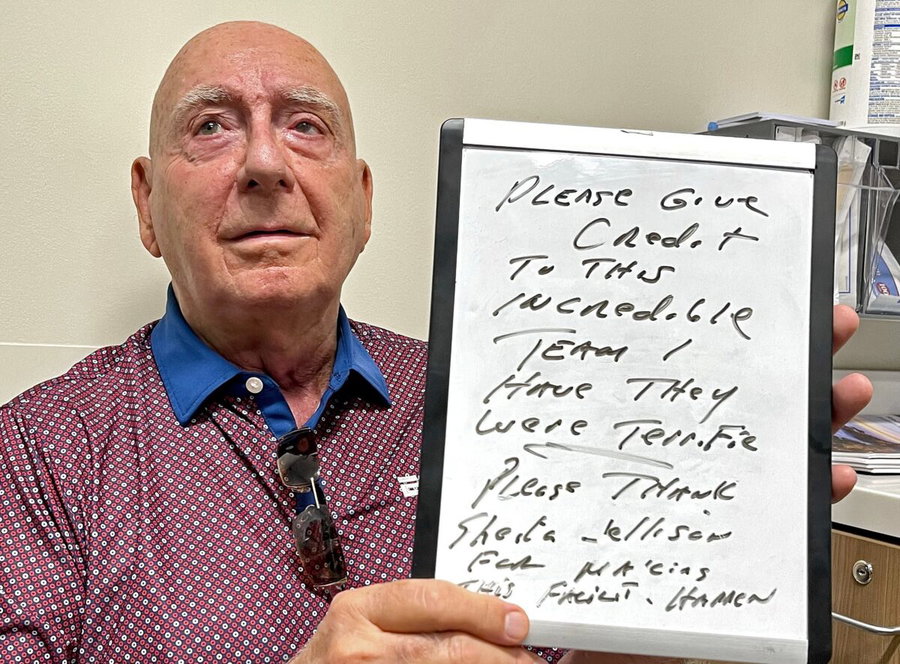 PLEASE GIVE
Credit
To THIS
INCREDIBLE
TEAM I
HAVE THEY
Were Terrific
Please THANK
Sheila Jellison
FOR MAKING
THIS FACILIT. HAPPEN